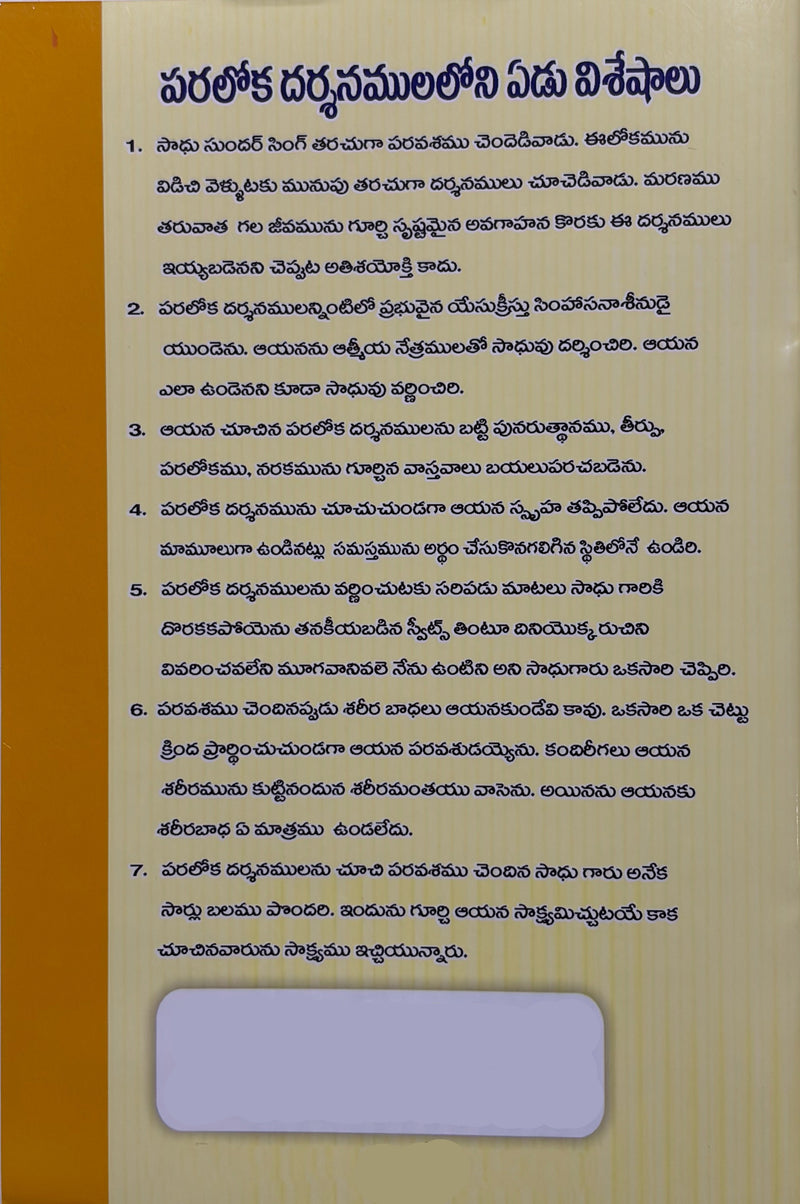 పరలోక దర్శనములలోని ఏడు విశేషాలు
1. సాధు సుందర్ సింగ్ తరచుగా పరవశము చెందెడివాడు. ఈలోకమును
విడిచి వెళ్ళుటకు మునుపు తరచుగా దర్శనములు చూచెడివాడు. మరణము
తరువాత గల జీవమును గూర్చి సృష్టమైన అవగాహన కొరకు ఈ దర్శనములు
ఇయ్యబడెనని చెప్పట అతిశయోక్తి కాదు.
2. పరలోక దర్శనములన్నింటిలో ప్రభువైన యేసుక్రీస్తు సింహాసనాశీనుడై
యుండెను. ఆయనను ఆత్మీయ నేత్రములతో సాధువు దర్శించిరి. ఆయన
ఎలా ఉండెనని కూడా సాధువు వర్ణించిరి.
3. ఆయన చూచిన పరలోక దర్శనములను బట్టి పునరుత్థానము, తీర్పు,
పరలోకము, నరకమును గూర్చిన వాస్తవాలు బయలుపరచబడెను.
4. పరలోక దర్శనమును చూచుచుండగా ఆయన స్పృహ తప్పిపోలేదు. ఆయన
మామూలుగా ఉండినట్లు సమస్తమును అర్థం చేసుకొనగలిగిన స్థితిలోనే ఉండిరి.
5. పరలోక దర్శనములను వర్ణించుటకు సరిపడు మాటలు సాధు గారికి
దొరకకపోయెను తనకీయబడిన స్వీట్స్ తింటూ దినియొక్క రుచిని
వివరించవలేని మూగవానివలె నేను ఉంటిని అని సాధుగారు ఒకసారి చెప్పిరి.
6. పరవశము చెందినప్పుడు శరీర బాధలు ఆయనకుండేవి కావు. ఒకసారి ఒక చెట్టు
క్రింద ప్రార్థించుచుండగా ఆయన పరవశుడయ్యెను. కందిరీగలు ఆయన
శరీరమును కుట్టినందున శరీరమంతయు వాసెను. అయినను ఆయనకు
శరీరబాధ ఏ మాత్రము ఉండలేదు.
7. పరలోక దర్శనములను చూచి పరవశము చెందిన సాధు గారు అనేక
సార్లు బలము పొందరి. ఇందును గూర్చి ఆయన సాక్ష్యమిచ్చుటయే కాక
చూచినవారును సాక్ష్యము ఇచ్చియున్నారు.